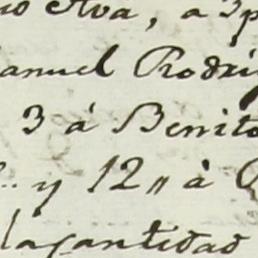 Alva, à 3 p
anuel Rodri
3 à Benito
.. y 12,, à
la cantidad